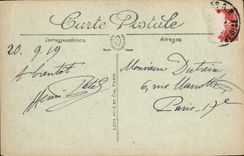 Carte Postale
Correspondance
Adresse
20.9.19
A bientôt
Henri
LEVY FILS ET CIE, PARIS
Monsieur Dutreix
6, rue
Paris 17e